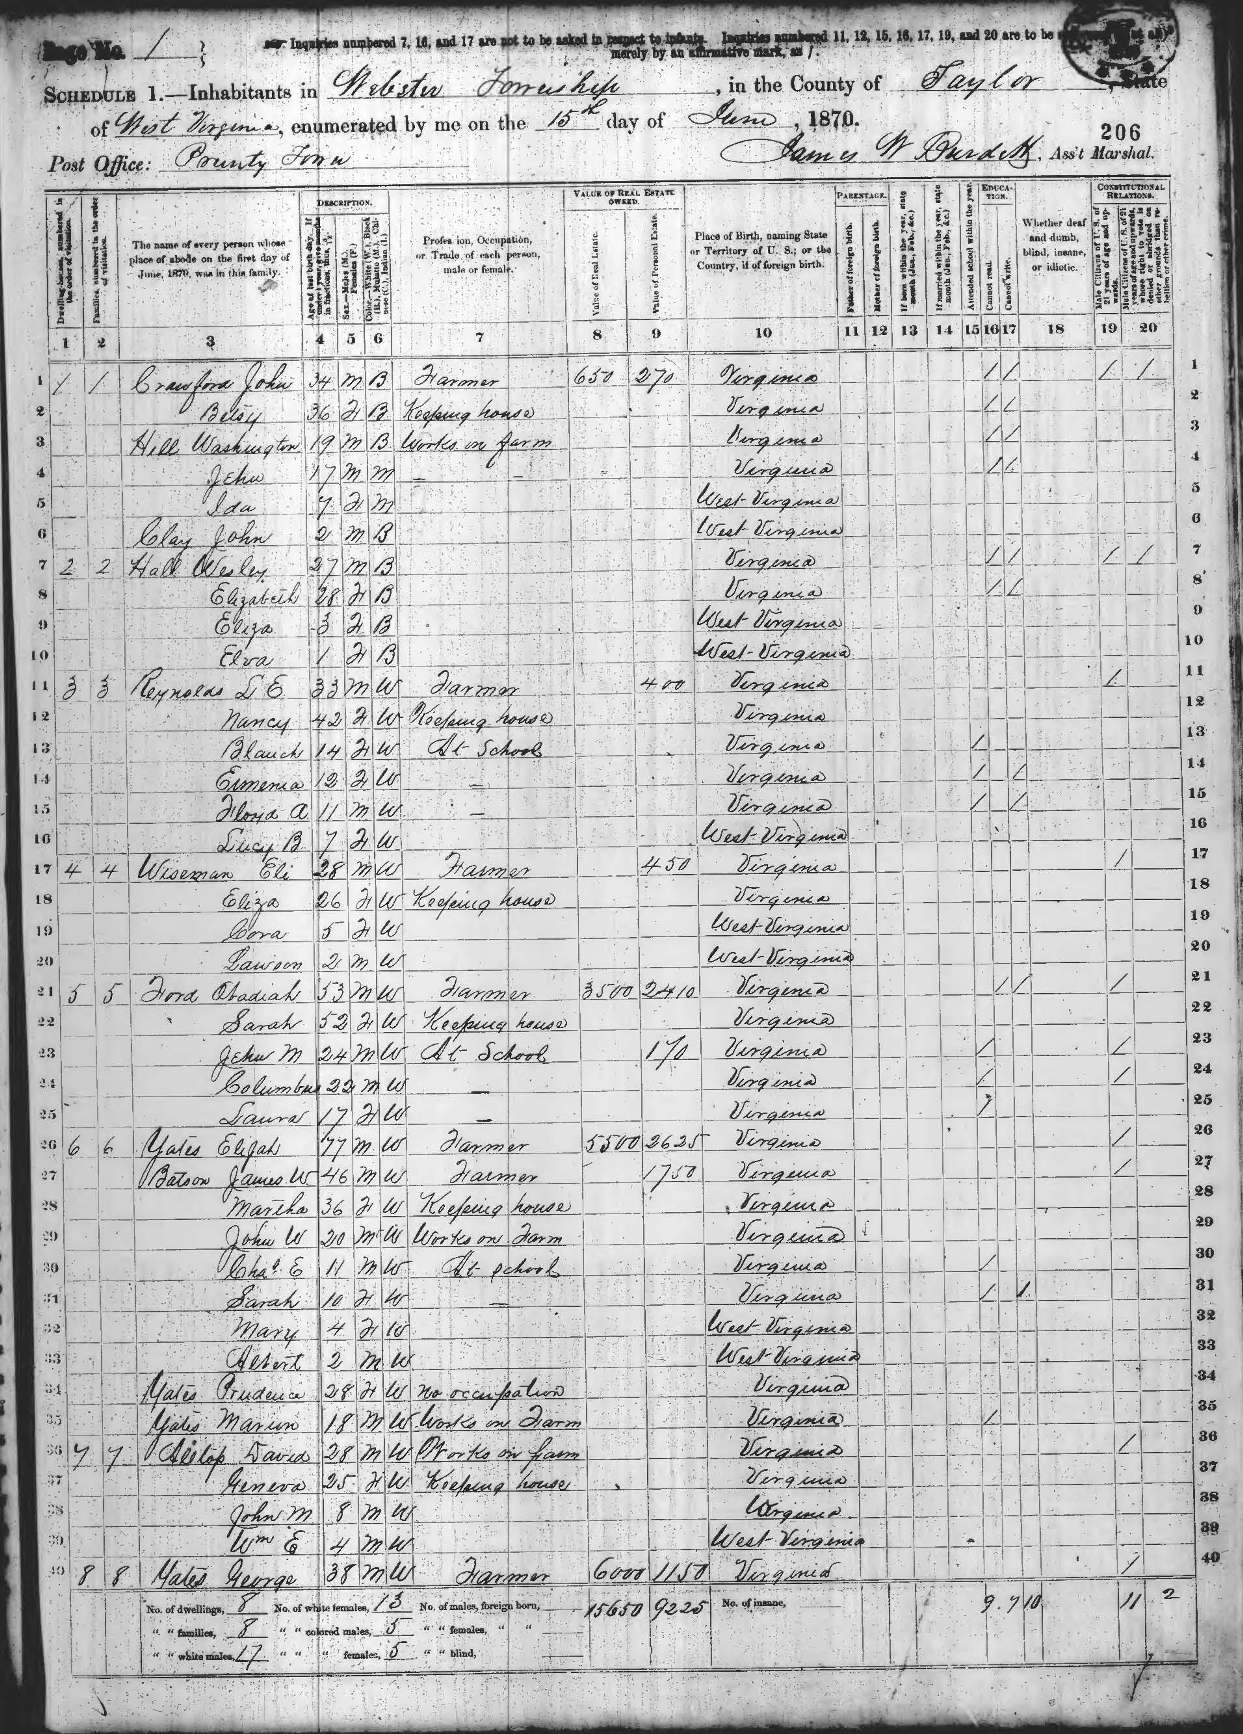 Page No. 1
Inquiries numbered 7, 16, and 17 are not to be asked in respect to infants. Inquiries numbered 11, 12, 15, 16, 17, 19, and 20 are to be
merely by an affirmative mark, as /.
SCHEDULE 1.—Inhabitants in Webster Township, in the County of Taylor, State
of West Virginia, enumerated by me on the 15th day of June, 1870.
206
Post Office: Prunty Town James W Burdett, Ass't Marshal.
Dwelling-houses, numbered in the order of visitation.
Families, numbered in the order of visitation.
The name of every person whose place of abode on the first day of June, 1870, was in this family.
DESCRIPTION.
Sex.—Males (M.), Females (F.)
Profession, Occupation, or Trade of each person, male or female.
VALUE OF REAL ESTATE OWNED.
Value of Real Estate.
Value of Personal Estate.
Place of Birth, naming State or Territory of U. S.; or the Country, if of foreign birth.
PARENTAGE.
Father of foreign birth.
Mother of foreign birth.
If born within the year, state month (Jan., Feb., &c.)
If married within the year, state month (Jan., Feb., &c.)
Attended school within the year.
EDUCATION.
Cannot read.
Cannot write.
Whether deaf and dumb, blind, insane, or idiotic.
CONSTITUTIONAL RELATIONS.
Male Citizens of U. S. of 21 years of age and upwards.
1 2 3 4 5 6 7 8 9 10 11 12 13 14 15 16 17 18 19 20
1 1 1 Crawford John 34 M B Farmer 650 270 Virginia / / / / 1
2 Betsy 36 F B Keeping house Virginia / / 2
3 Hill Washington 19 M B Works on farm Virginia / / 3
4 Jehu 17 M M — — Virginia / / 4
5 Ida 7 F M West Virginia 5
6 Clay John 2 M B West Virginia 6
7 2 2 Hall Wesley 27 M B Virginia / / / / 7
8 Elizabeth 28 F B Virginia / / 8
9 Eliza 3 F B West Virginia 9
10 Elva 1 F B West Virginia 10
11 3 3 Reynolds L E 33 M W Farmer 400 Virginia / 11
12 Nancy 42 F W Keeping house Virginia 12
13 Blanch 14 F W At School Virginia / 13
14 Ermenia 12 F W — Virginia / / 14
15 Floyd A 11 M W — Virginia / / 15
16 Lucy B 7 F W West Virginia 16
17 4 4 Wiseman Eli 28 M W Farmer 450 Virginia / 17
18 Eliza 26 F W Keeping house Virginia 18
19 Cora 5 F W West Virginia 19
20 Lawson 2 M W West Virginia 20
21 5 5 Ford Obadiah 53 M W Farmer 3500 2410 Virginia / / / 21
22 Sarah 52 F W Keeping house Virginia 22
23 Jehu M 24 M W At School 170 Virginia / / 23
24 Columbus 22 M W — Virginia / / 24
25 Laura 17 F W — Virginia / 25
26 6 6 Yates Elijah 77 M W Farmer 5500 2625 Virginia / 26
27 Batson James W 46 M W Farmer 1750 Virginia / 27
28 Martha 36 F W Keeping house Virginia 28
29 John W 20 M W Works on Farm Virginia 29
30 Chas E 11 M W At school Virginia / 30
31 Sarah 10 F W — Virginia / / 31
32 Mary 4 F W West Virginia 32
33 Albert 2 M W West Virginia 33
34 Yates Prudence 28 F W No occupation Virginia 34
35 Yates Marion 18 M W Works on Farm Virginia / 35
36 7 7 Alstop David 28 M W Works on farm Virginia / 36
37 Geneva 25 F W Keeping house Virginia 37
38 John M 8 M W Virginia 38
39 Wm E 4 M W West Virginia 39
40 8 8 Yates George 38 M W Farmer 6000 1150 Virginia / 40
No. of dwellings, 8 No. of white females, 13 No. of males, foreign born, 15650 9225 No. of insane, 9 7 10 11 2
" " families, 8 " " colored males, 5 " " females, " "
" " white males, 17 " " " females, 5 " " blind,